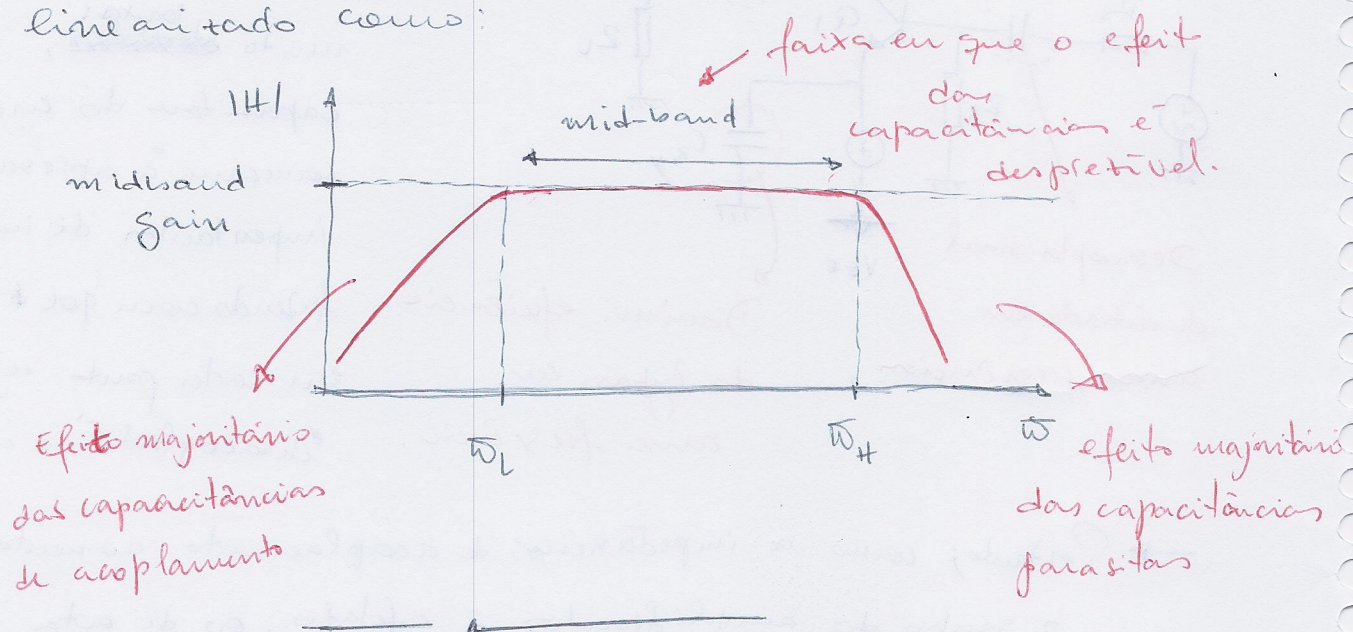 linearizado como:
faixa em que o efeito
das
capacitâncias é
desprezível.
|H|
mid-band
midband
gain
ω_L
ω_H
ω
Efeito majoritário
das capaacitâncias
de acoplamento
efeito majoritário
das capacitâncias
parasitas